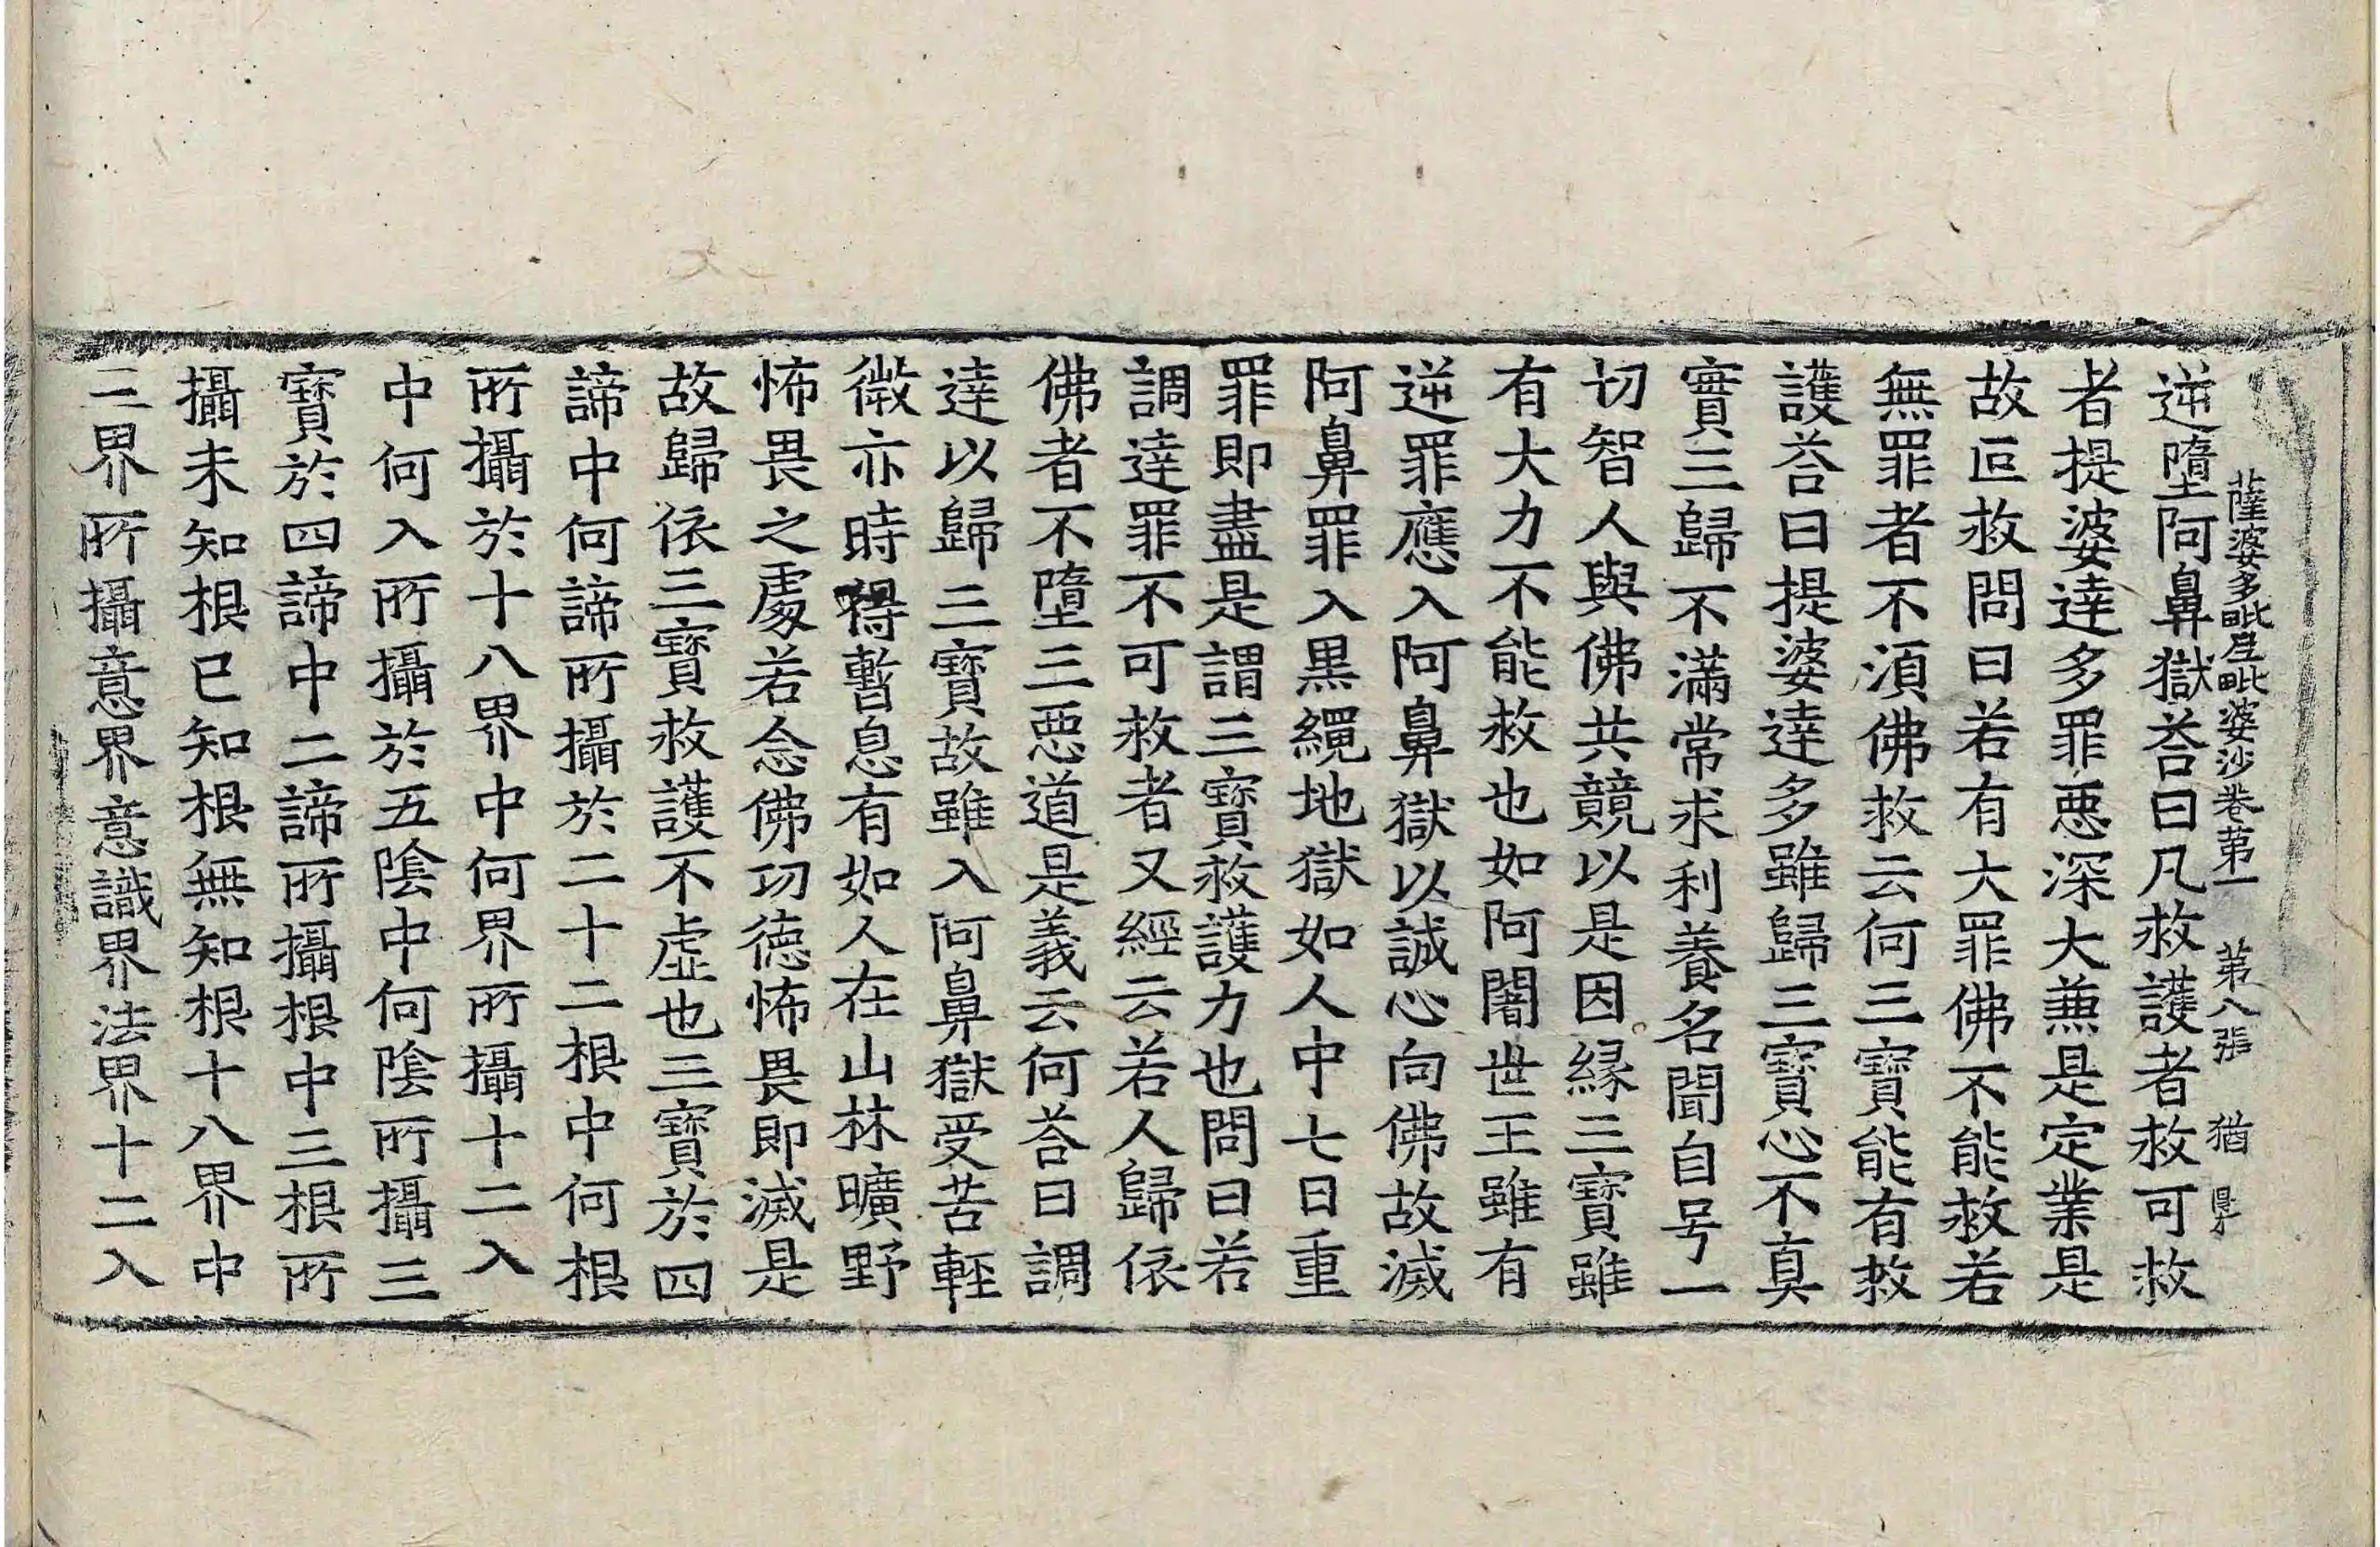 薩婆多毗尼毗婆沙卷苐一 苐八張 猶
逆墮阿鼻獄荅曰凡救護者救可救
者提婆達多罪惡深大兼是定業是
故叵救問曰若有大罪佛不能救若
無罪者不湏佛救云何三寶能有救
護荅曰提婆達多雖歸三寶心不真
實三歸不滿常求利養名聞自号一
切智人與佛共競以是因緣三寶雖
有大力不能救也如阿闍世王雖有
逆罪應入阿鼻獄以誠心向佛故滅
阿鼻罪入黒繩地獄如人中七日重
罪即盡是謂三寶救護力也問曰若
調達罪不可救者又經云若人歸依
佛者不墮三惡道是義云何荅曰調
達以歸三寶故雖入阿鼻獄受苦輕
微亦時得暫息有如人在山林曠野
怖畏之處若念佛功德怖畏即滅是
故歸依三寶救護不虛也三寶於四
諦中何諦所攝於二十二根中何根
所攝於十八界中何界所攝十二入
中何入所攝於五陰中何陰所攝三
寶於四諦中二諦所攝根中三根所
攝未知根已知根無知根十八界中
三界所攝意界意識界法界十二入